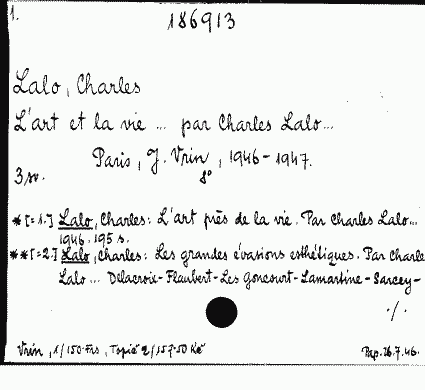 1.
186913
Lalo, Charles
L'art et la vie ... par Charles Lalo...
Paris, J. Vrin, 1946-1947.
3 sv. 8°
*[=1.] Lalo, Charles: L'art près de la vie. Par Charles Lalo...
1946. 195 s.
**[=2.] Lalo, Charles: Les grandes évasions esthétiques. Par Charles
Lalo... Delacroix-Flaubert-Les Goncourt-Lamartine-Sarcey-
./.
Vrin, 1/150 Frs, Topič 2/157.50 Kč
26.7.46.